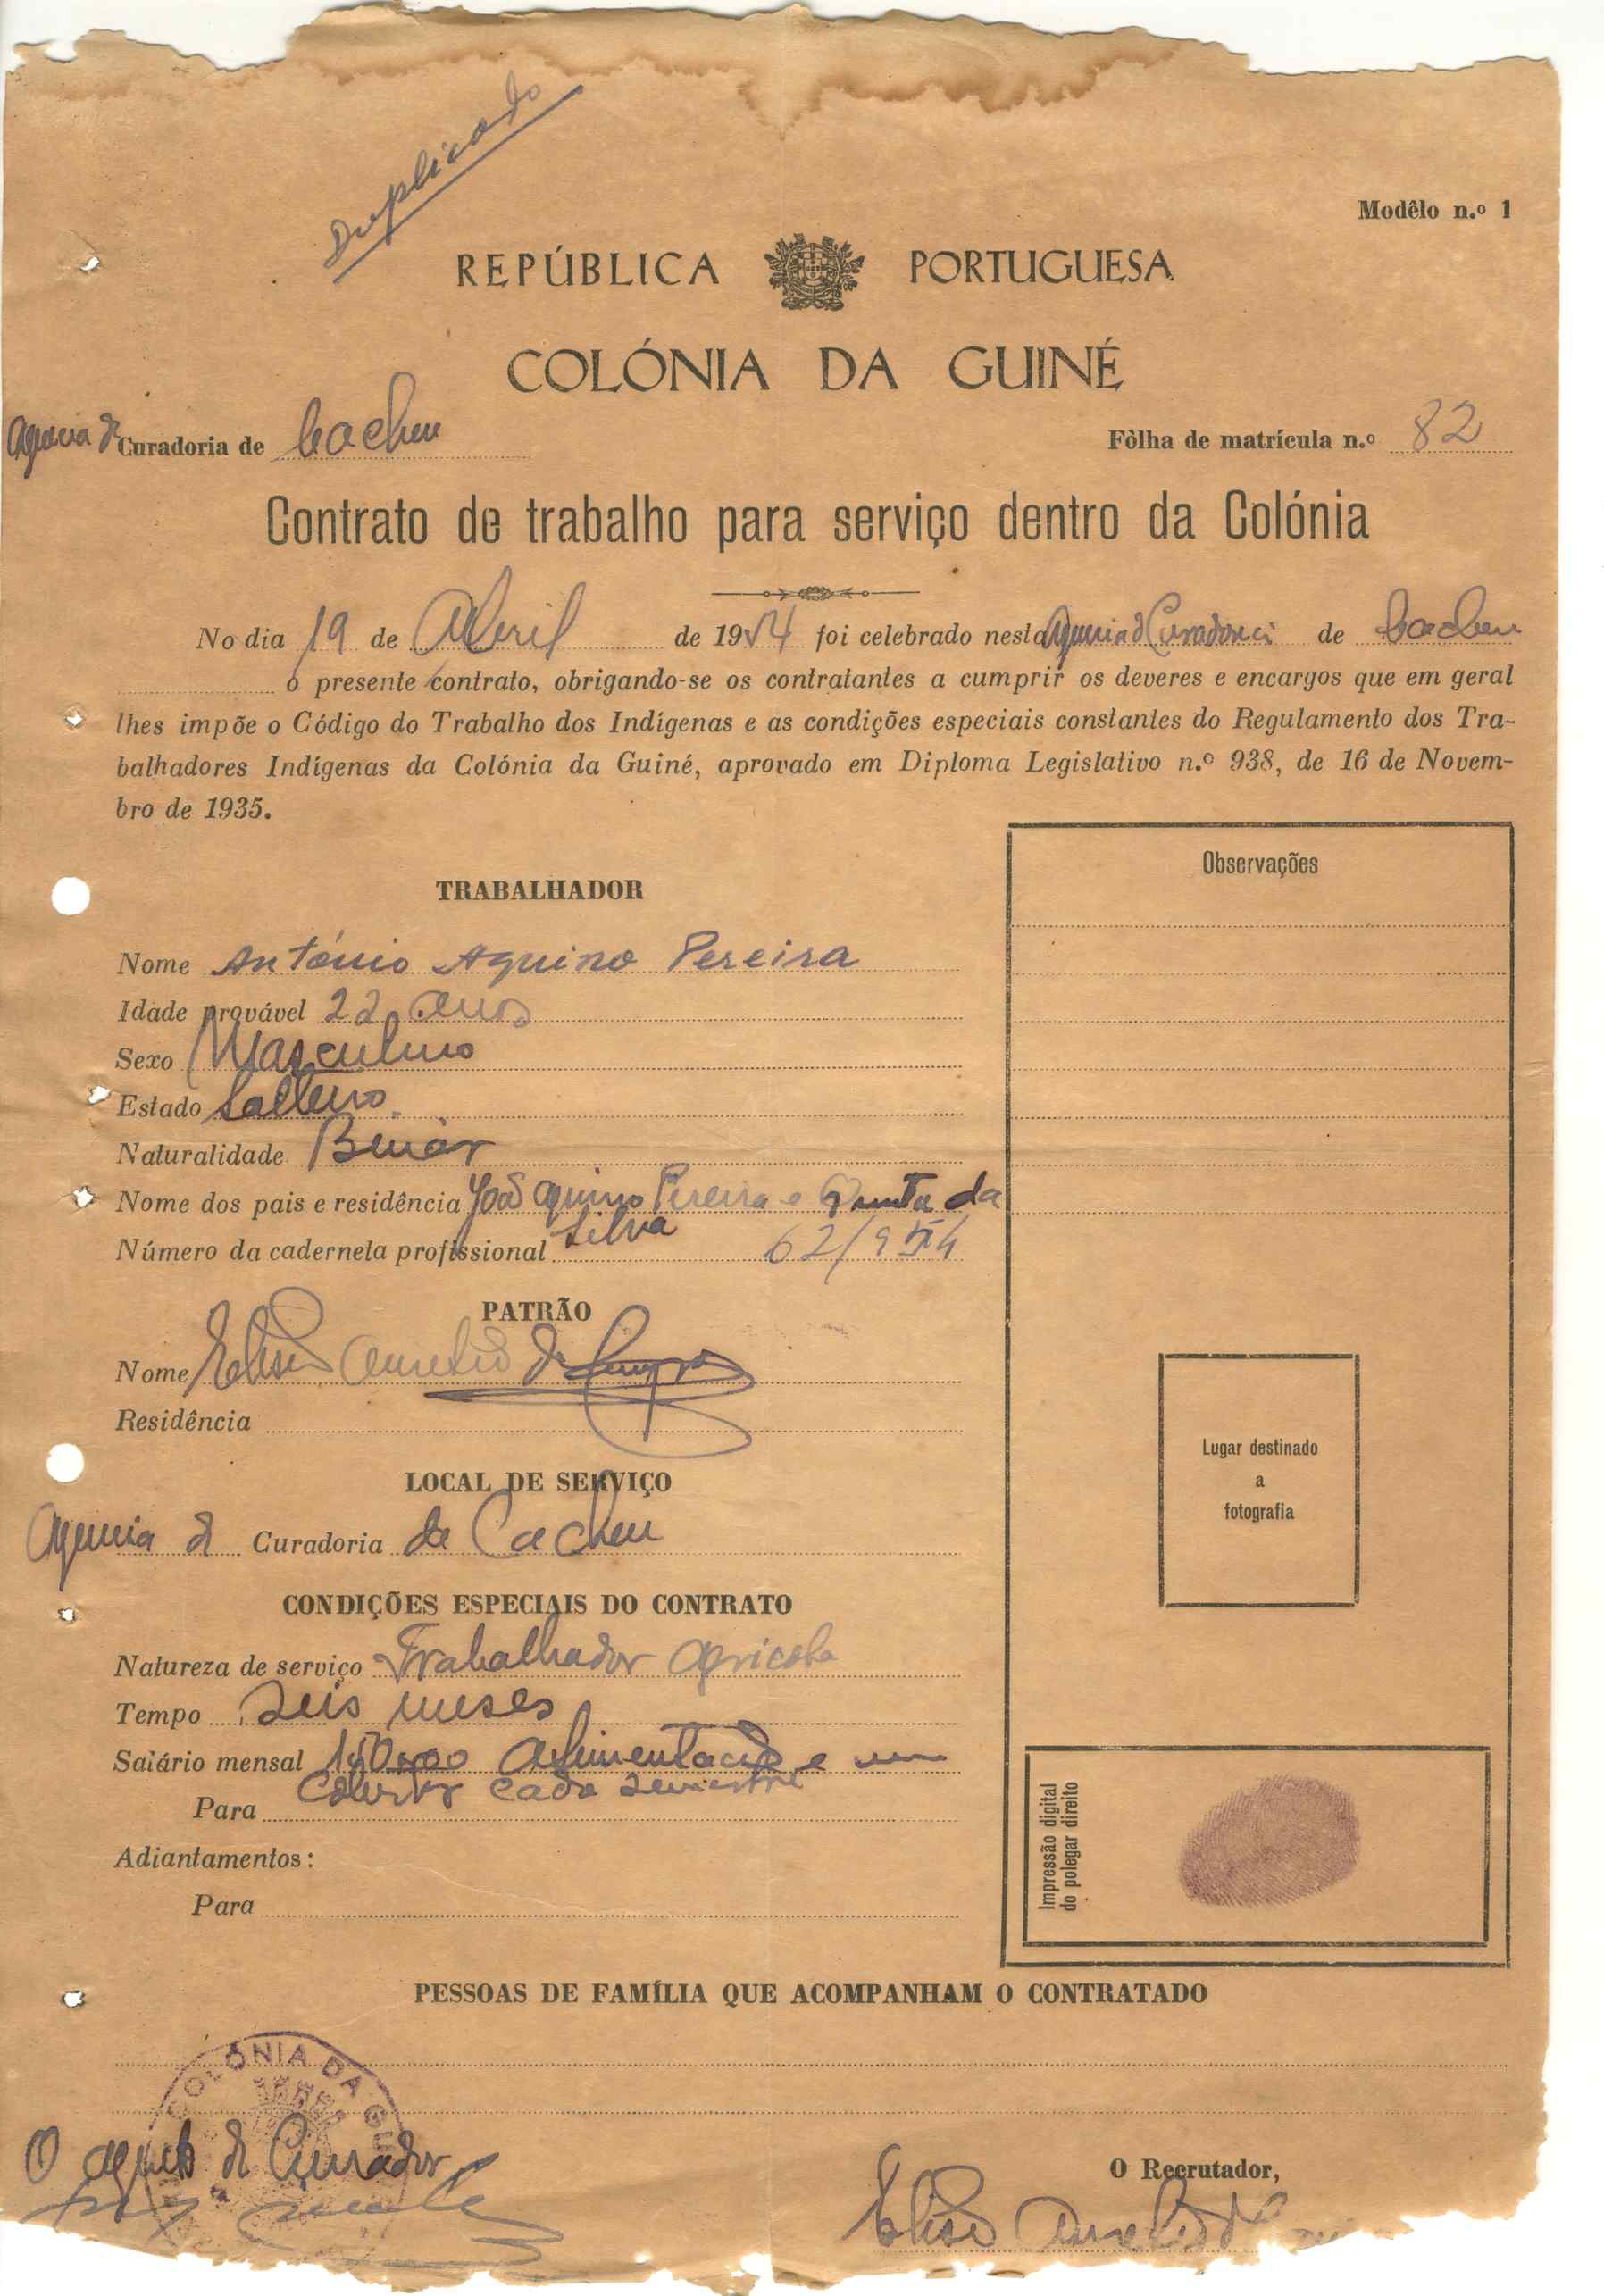 Duplicado
Modêlo n.º 1
REPÚBLICA PORTUGUESA
COLÓNIA DA GUINÉ
Agencia de Curadoria de Cacheu
Fôlha de matrícula n.º 82
Contrato de trabalho para serviço dentro da Colónia
No dia 19 de Abril de 1954 foi celebrado nesta Agencia de Curadoria de Cacheu
o presente contrato, obrigando-se os contratantes a cumprir os deveres e encargos que em geral
lhes impõe o Código do Trabalho dos Indígenas e as condições especiais constantes do Regulamento dos Tra-
balhadores Indígenas da Colónia da Guiné, aprovado em Diploma Legislativo n.º 938, de 16 de Novem-
bro de 1935.
Observações
TRABALHADOR
Nome António Aquino Pereira
Idade provável 22 anos
Sexo Masculino
Estado Solteiro.
Naturalidade
Nome dos pais e residência João Aquino Pereira e Quinta da
Silva
Número da caderneta profissional 62/954
PATRÃO
Nome Eliseu Aurelio da
Residência
Lugar destinado
a
fotografia
LOCAL DE SERVIÇO
Agencia de Curadoria de Cacheu
CONDIÇÕES ESPECIAIS DO CONTRATO
Natureza de serviço Trabalhador agricola
Tempo Seis meses
Salário mensal Alimentação e um
cobertor cada semestre
Para
Adiantamentos:
Para
Impressão digital
do polegar direito
PESSOAS DE FAMÍLIA QUE ACOMPANHAM O CONTRATADO
COLÓNIA DA GUI
O agente de Curador
O Recrutador,
Eliseu Aurelio da